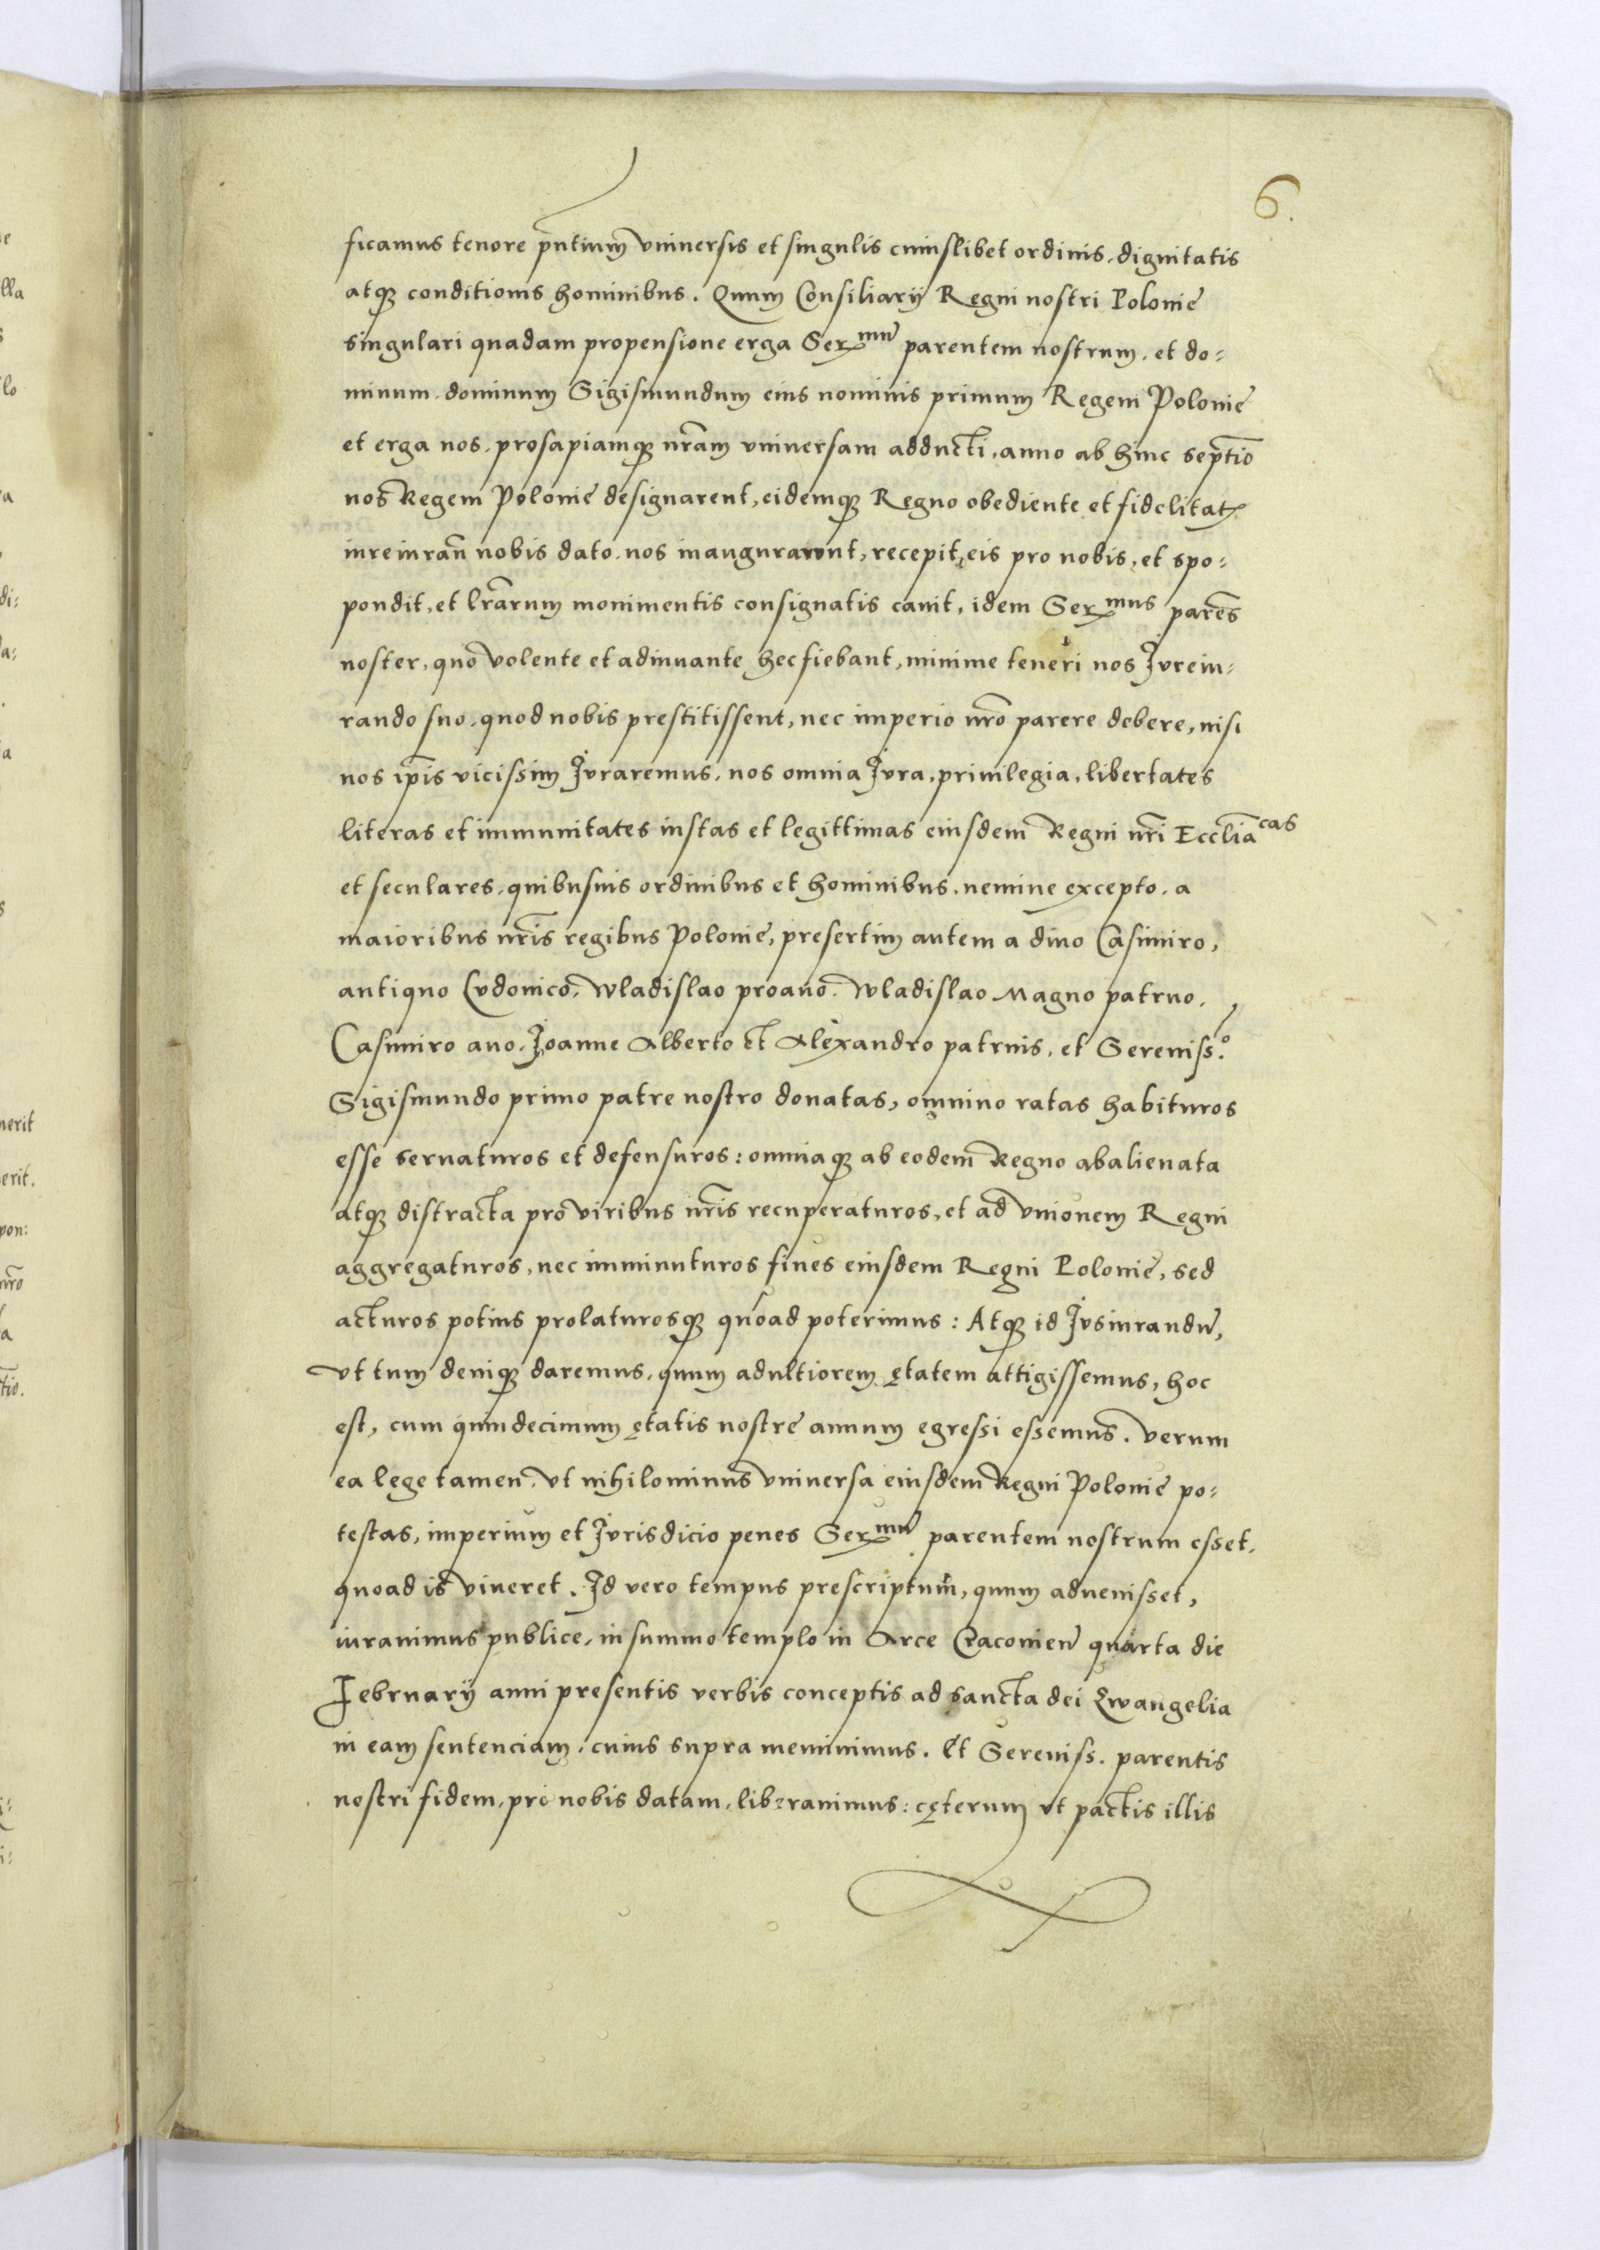 6.
ficamus tenore pñtium vniuersis et singulis cuiuslibet ordinis, dignitatis
atq3 conditionis hominibus. Quum Consiliarij Regni nostri Polonie
singulari quadam propensione erga Ser^mũ parentem nostrum, et do=
minum, dominum Sigismundum eius nominis primum Regem Polonie
et erga nos, prosapiamq3 nr̃am vniuersam adducti, anno ab hinc septĩo
nos Regem Polonie designarent, eidemq3 Regno obediente et fidelitat3
iureiurañ nobis dato, nos inaugurarent, recepit eis pro nobis, et spo=
pondit, et lr̃arum monimentis consignatis cauit, idem Ser^mus parẽs
noster, quo volente et adiuuante hec fiebant, minime teneri nos Jvreiu=
rando suo, quod nobis prestitissent, nec imperio nr̃o parere debere, nisi
nos ip̃is vicissim Jvraremus, nos omnia Jvra, priuilegia, libertates
literas et immunitates iustas et legittimas eiusdem Regni nr̃i Eccl̃ia^cas
et seculares, quibusuis ordinibus et hominibus, nemine excepto, a
maioribus nr̃is regibus Polonie, presertim autem a diuo Casimiro,
antiquo Lvdouico, Wladislao proauo, Wladislao Magno patruo,
Casimiro auo, Joanne Alberto et Alexandro patruis, et Sereniss.º
Sigismundo primo patre nostro donatas, omnino ratas habituros
esse seruaturos et defensuros: omniaq3 ab eodem Regno abalienata
atq3 distracta pro viribus nr̃is recuperaturos, et ad vnionem Regni
aggregaturos, nec imminuturos fines eiusdem Regni Polonie, sed
acturos potius prolaturosq3 quoad poterimus: Atq3 id Jvsiurandũ,
vt tum deniq3 daremus, quum adultiorem ętatem attigissemus, hoc
est, cum quindecimum ętatis nostre annum egressi essemus. verum
ea lege tamen, vt nihilominus vniuersa eiusdem Regni Polonie po=
testas, imperium et Jvrisdicio penes Ser^mũ parentem nostrum esset,
quoad is viueret. Id vero tempus prescriptum, quum aduenisset,
iurauimus publice, in summo templo in Arce Cracouieñ quarta die
Februarij anni presentis verbis conceptis ad sancta dei Ewangelia
in eam sentenciam, cuius supra meminimus. Et Sereniss. parentis
nostri fidem, pro nobis datam, liberauimus: cęterum vt pactis illis